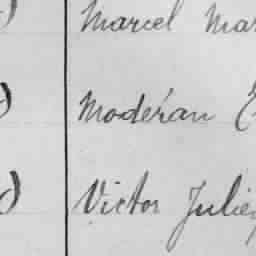 Marcel Mar
Moderan
Victor Julien